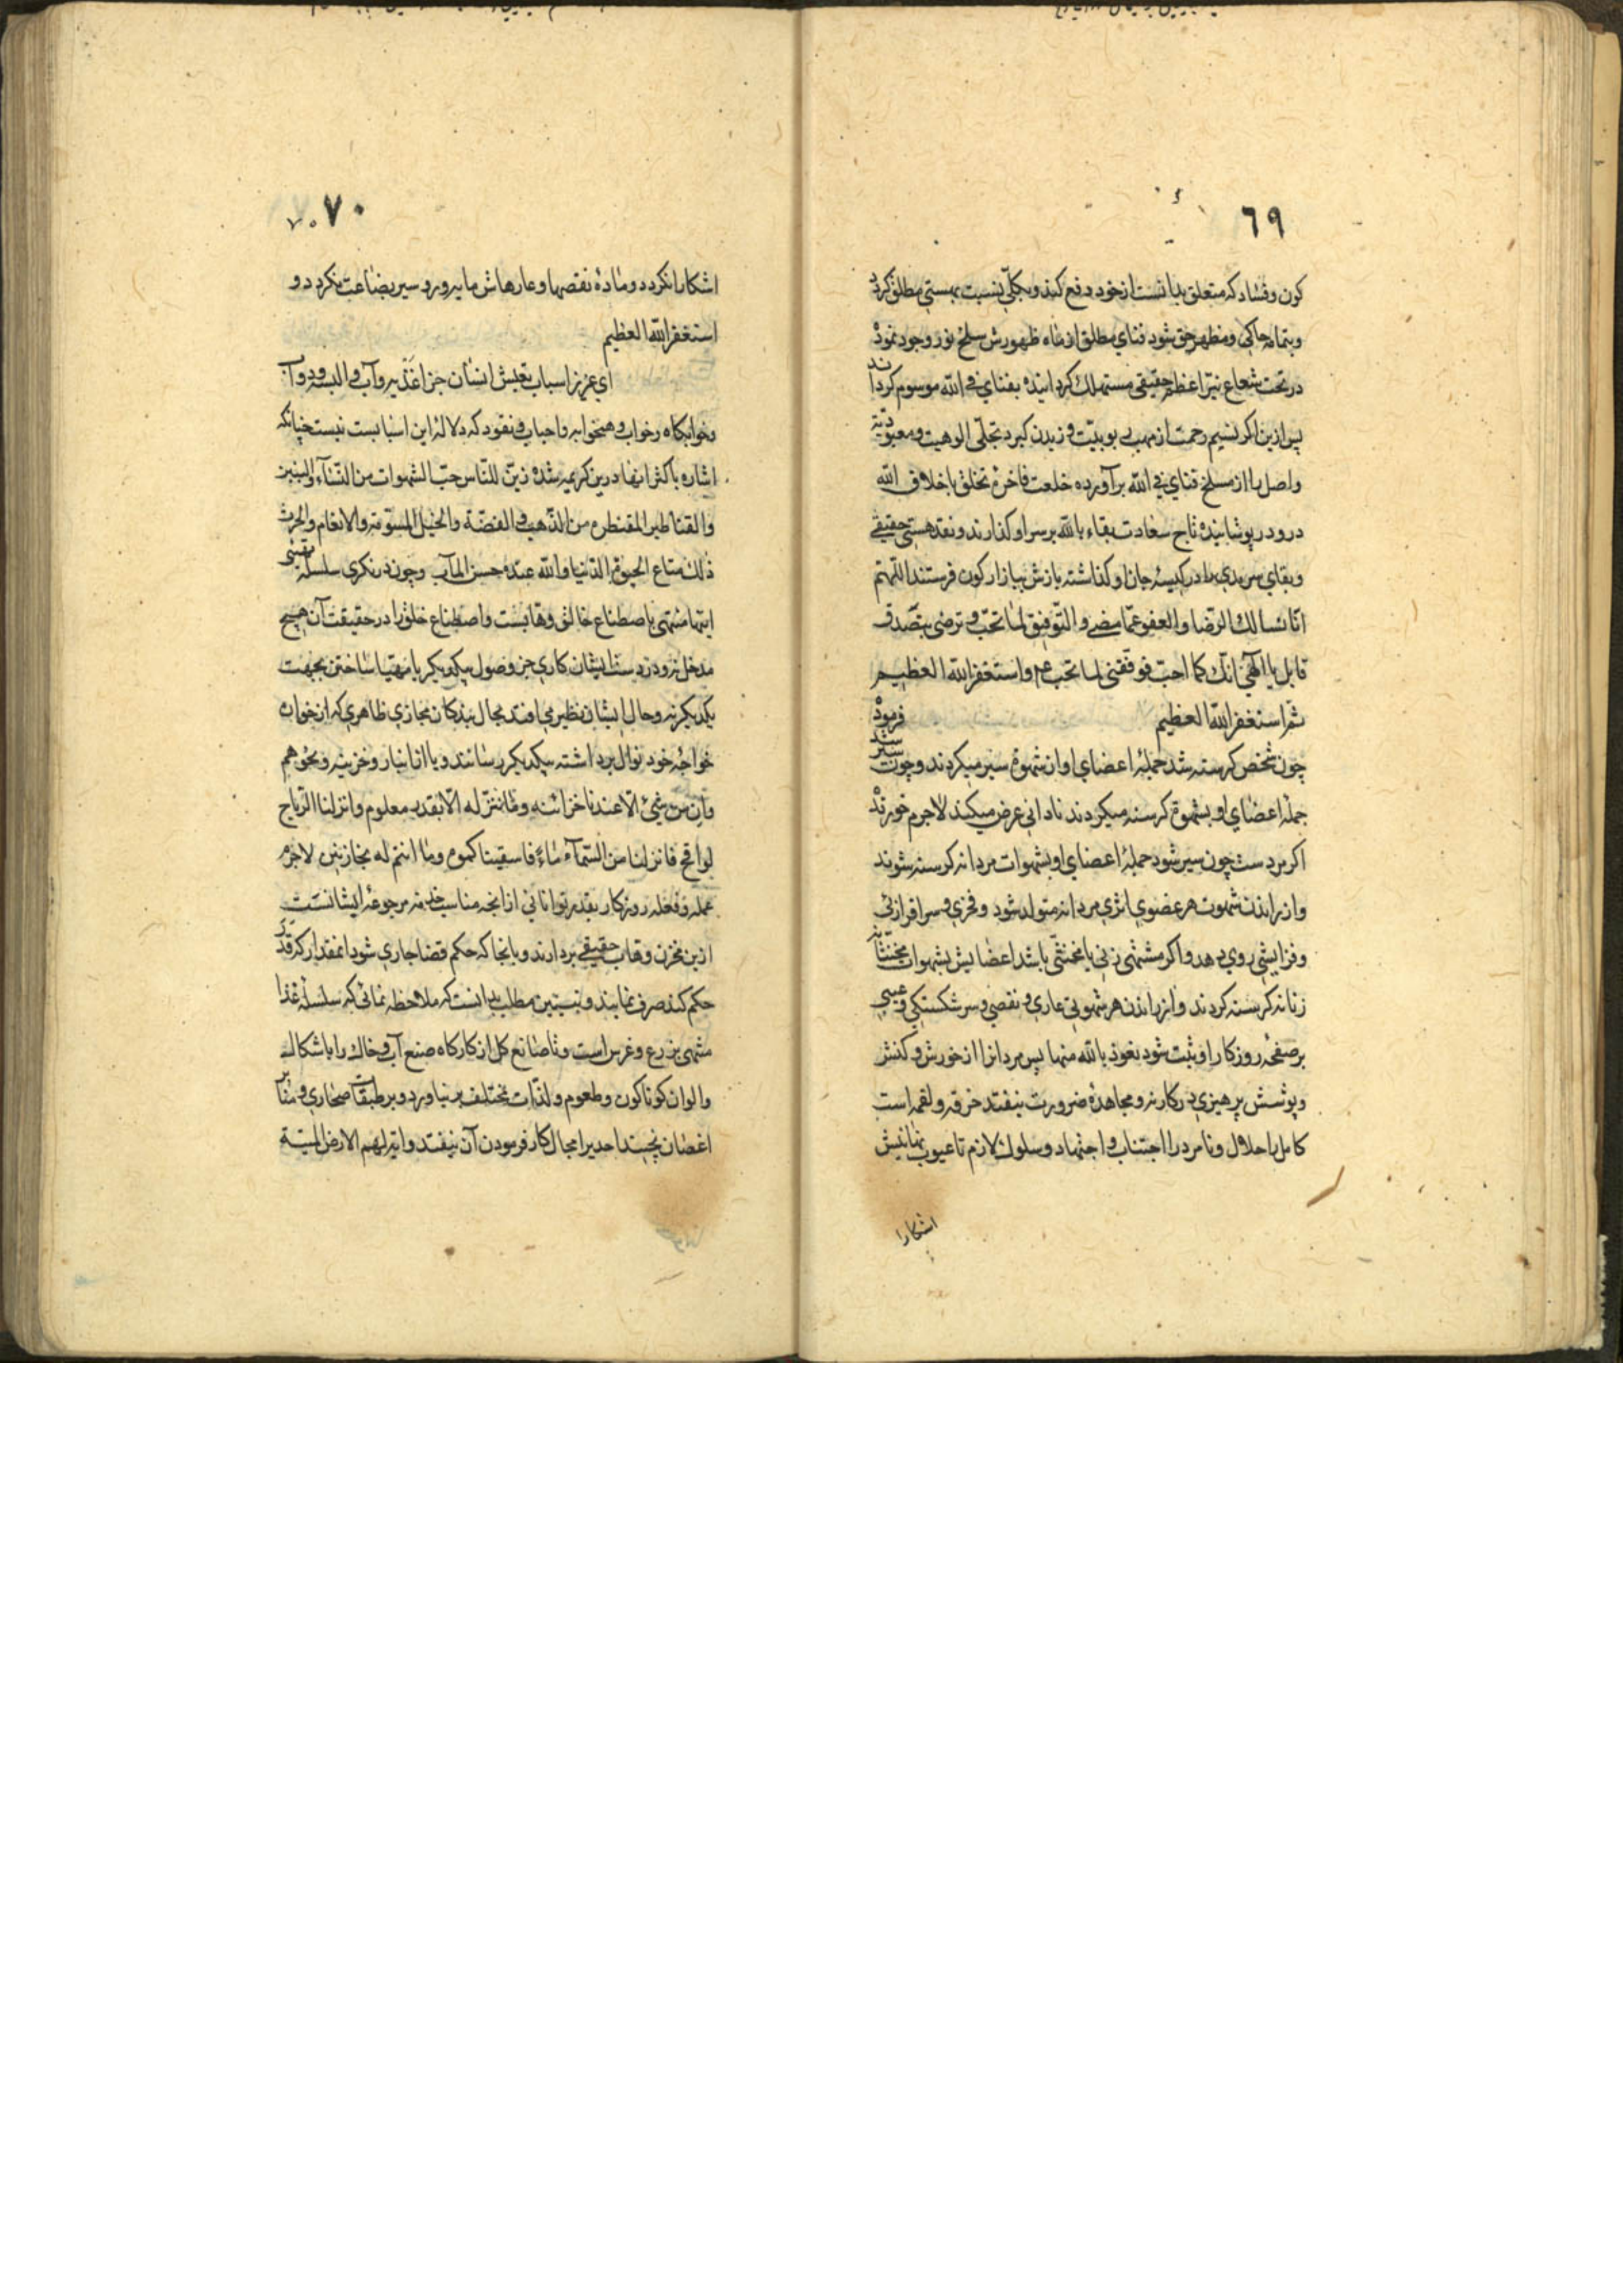 ٦٩
كون وفساد كه متعلق بدانست از خود دفع كند وبكلّي بنسبت بهستي مطلق كردد
وبتمامه حاكي ومظهر حق شود فناي مطلق از ماه ظهورش سلخ نور وجود نموده
در تحت شعاع نيّر اعظم حقيقي مستهلك كردانيده بفناي في الله موسوم كردانند
پس ازين اكر نسيم رحمت از مهب ربوبيّت وزيدن كيرد تجلّي الوهيت ومعبوديّة
واصل را از مسلخ فناي في الله برآورده خلعت فاخرهٔ تخلق باخلاق الله
درو در پوشانيده تاج سعادت بقاء بالله بر سر او كذارند ونقد هستي حقيقي
وبقاي سرمدي را در كيسهٔ جان او كذاشته بازش ببازار كون فرستند اللّهم
انّا نسالك الرّضا والعفو عمّا مضى والتّوفيق لما تحبّ وترضى بتصّدق
قابل يا الهي انّك كما احبّ فوفّقني لما تحب عم واستغفر الله العظيم
ثمّ استغفر الله العظيم
فرموده
چون شخص كرسنه شد جملهٔ اعضاي او از شهوة سير ميكردند وچون سير شد
جمله اعضاي او بشهوة كرسنه ميكردند ناداني عرض ميكند لاجرم خورنده
اكر مردست چون سير شود جملهٔ اعضاي او بشهوات مردانه كرسنه شوند
واز راندن شهوت هر عضوي اثري مردانه متولد شود وفخري وسرافرازئي
وفزايشي روي دهد واكر مشتهى زني يا مخنثّي باشد اعضايش بشهوات مخنثّانه
زنانه كرسنه كردند واز راندن هر شهوتي عاري ونقصي وسرشكستكي وعيبي
بر صفحهٔ روزكار او ثبت شود نعوذ بالله منها پس مردانرا از خورش وكنش
وپوشش پرهيزي دركار نه ومجاهدهٔ ضرورت نيفتد خرقه ولقمه است
كامل را حلال ونامرد را اجتناب واجتهاد وسلوك لازم تا عيوب نهانيش
اشكارا
٧٠ ٧٠
اشكارا نكردد ومادهٔ نقصها وعارهاش مايه ورو سير بضاعت نكردد و
استغفر الله العظيم
اي عزيز اسباب تعيش انسان جز اغذيه وآب والبسه ودوآب
وخوابكاه رخواب وهمخوابه واحباب ونقود كه دلالهٔ اين اسبابست نيست چنانكه
اشاره باكثر انها درين كريمه شده زيّن للنّاس حبّ الشهوات من النّسآء والبنين
والقناطير المقنطره من الذّهب والفضّة والخيل المسوّمة والانعام والحرث
ذلك متاع الحيوة الدّنيا والله عنده حسن المآب وچون درنكري سلسلهٔ
اينها منتهى باصطناع خالق وهابست واصطناع خلق را در حقيقت آن هيچ
مدخل نه ودر دست ايشان كاري جز وصول بيكديكر يا مهيّا ساختن بجهت
يكديكر نه وحال ايشان نظير مي افتد بحال بندكان مجازي ظاهري كه از خوان
خواجهٔ خود نوال برداشته بيكديكر رسانند ويا از انبار وخزينه ونحو هم
وان من شيئ الّا عندنا خزائنه وما ننزّله الّا بقدر معلوم وانزلنا الرّياح
لواقح فانزلنا من السّمآء ماءً فاسقيناكموه وما انتم له بخازنين لاجرم
عمله وفعلهٔ روزكار بقدر توانائي از انچه مناسب خدمه مرجوعهٔ ايشانست
ازين مخزن وهاب حقيقي بردارند وبانجا كه حكم قضا جاري شود انمقدار كه قدر
حكم كند صرف نمايند وتبيين مطلب بدانست كه ملاحظه نمائي كه سلسلهٔ غذا
منتهى بزرع وغرس است وتا صانع كل از كاركاه صنع آب وخاك را باشكال
والوان كوناكون وطعوم ولذّات مختلف بر نياورد وبر طبقات صحاري ومنابر
اغصان نچيند احديرا مجال كار فرمودن آن نيفتد واية لهم الارض الميتة